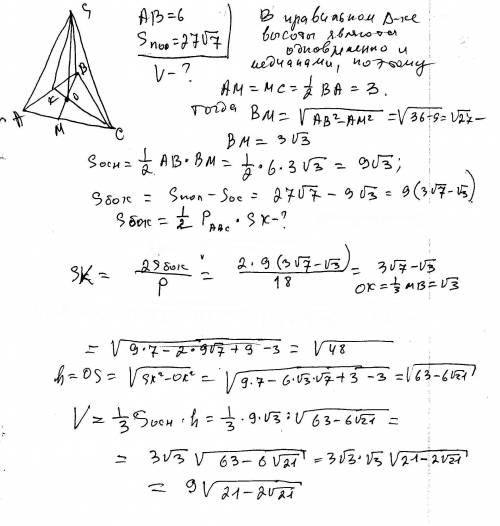 S
A
B
C
K
O
M
AB=6
Sпов=27√7
V-?
В правильном Δ-ке
высоты являются
одновременно и
медианами, поэтому
AM=MC=½BA=3.
Тогда BM=√(AB²-AM²)=√(36-9)=√27=
BM=3√3
Sосн=½AB·BM=½·6·3√3=9√3;
Sбок=Sпол-Sос=27√7-9√3=9(3√7-√3)
Sбок=½P_ABC·SK-?
SK=2Sбок/P=2·9(3√7-√3)/18=3√7-√3
OK=⅓MB=√3
=√(9·7-2·9√7+9-3)=√48
h=OS=√(SK²-OK²)=√(9·7-6·√3·√7+3-3)=√(63-6√21)
V=⅓Sосн·h=⅓·9·√3·√(63-6√21)=
=3√3√(63-6√21)=3√3·√3√(21-2√21)
=9√(21-2√21)